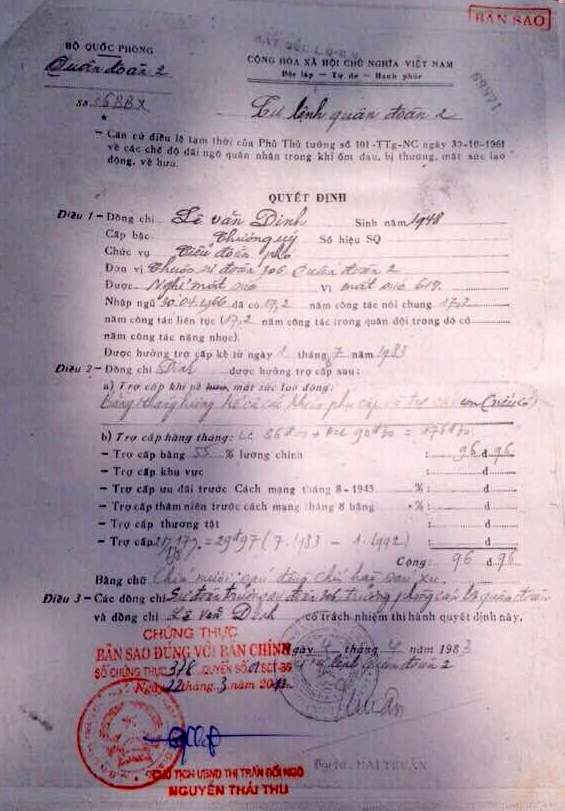 BẢN SAO
BỘ QUỐC PHÒNG
Quân đoàn 2
CỘNG HÒA XÃ HỘI CHỦ NGHĨA VIỆT NAM
Độc lập — Tự do — Hạnh phúc
Số 56BBX
Tư lệnh quân đoàn 2
— Căn cứ điều lệ tạm thời của Phủ Thủ tướng số 161-TTg-NC ngày 30-10-1961
về các chế độ đãi ngộ quân nhân trong khi ốm đau, bị thương, mất sức lao
động, về hưu.
QUYẾT ĐỊNH
Điều 1 - Đồng chí Lê văn Dinh Sinh năm 1948
Cấp bậc Thượng uý Số hiệu SQ
Chức vụ Tiểu đoàn phó
Đơn vị Thuộc sư đoàn 306 Quân đoàn 2
Được Nghỉ mất sức vì mất sức 61%
Nhập ngũ 30.04.1966 đã có 17,2 năm công tác nói chung 17,2
năm công tác liên tục (17,2 năm công tác trong quân đội trong đó có
năm công tác nặng nhọc).
Được hưởng trợ cấp kể từ ngày 1 tháng 7 năm 1983
Điều 2 - Đồng chí Dinh được hưởng trợ cấp sau:
a) Trợ cấp khi về hưu, mất sức lao động:
b) Trợ cấp hàng tháng:
— Trợ cấp bằng 55 % lương chính : 96 đ 96
— Trợ cấp khu vực : đ
— Trợ cấp ưu đãi trước Cách mạng tháng 8-1945 % : đ
— Trợ cấp thâm niên trước cách mạng tháng 8 bằng % : đ
— Trợ cấp thương tật : đ
— Trợ cấp = 29đ97 (7.1983 - 1.1992) : đ
Cộng: 96 đ 96
Bằng chữ Chín mươi sáu đồng chín hào sáu xu
Điều 3 — Các đồng chí Sư đoàn trưởng sư đoàn 306 trưởng phòng cán bộ quân đoàn
và đồng chí Lê văn Dinh có trách nhiệm thi hành quyết định này.
Ngày 4 tháng 7 năm 1983
Tư lệnh quân đoàn 2
CHỨNG THỰC
BẢN SAO ĐÚNG VỚI BẢN CHÍNH
SỐ CHỨNG THỰC 378 QUYỂN SỐ 01 SCT-BS
Ngày 22 tháng 3 năm
CHỦ TỊCH UBND THỊ TRẤN ĐỒI NGÔ
NGUYỄN THÁI THU
MAI THUẬN